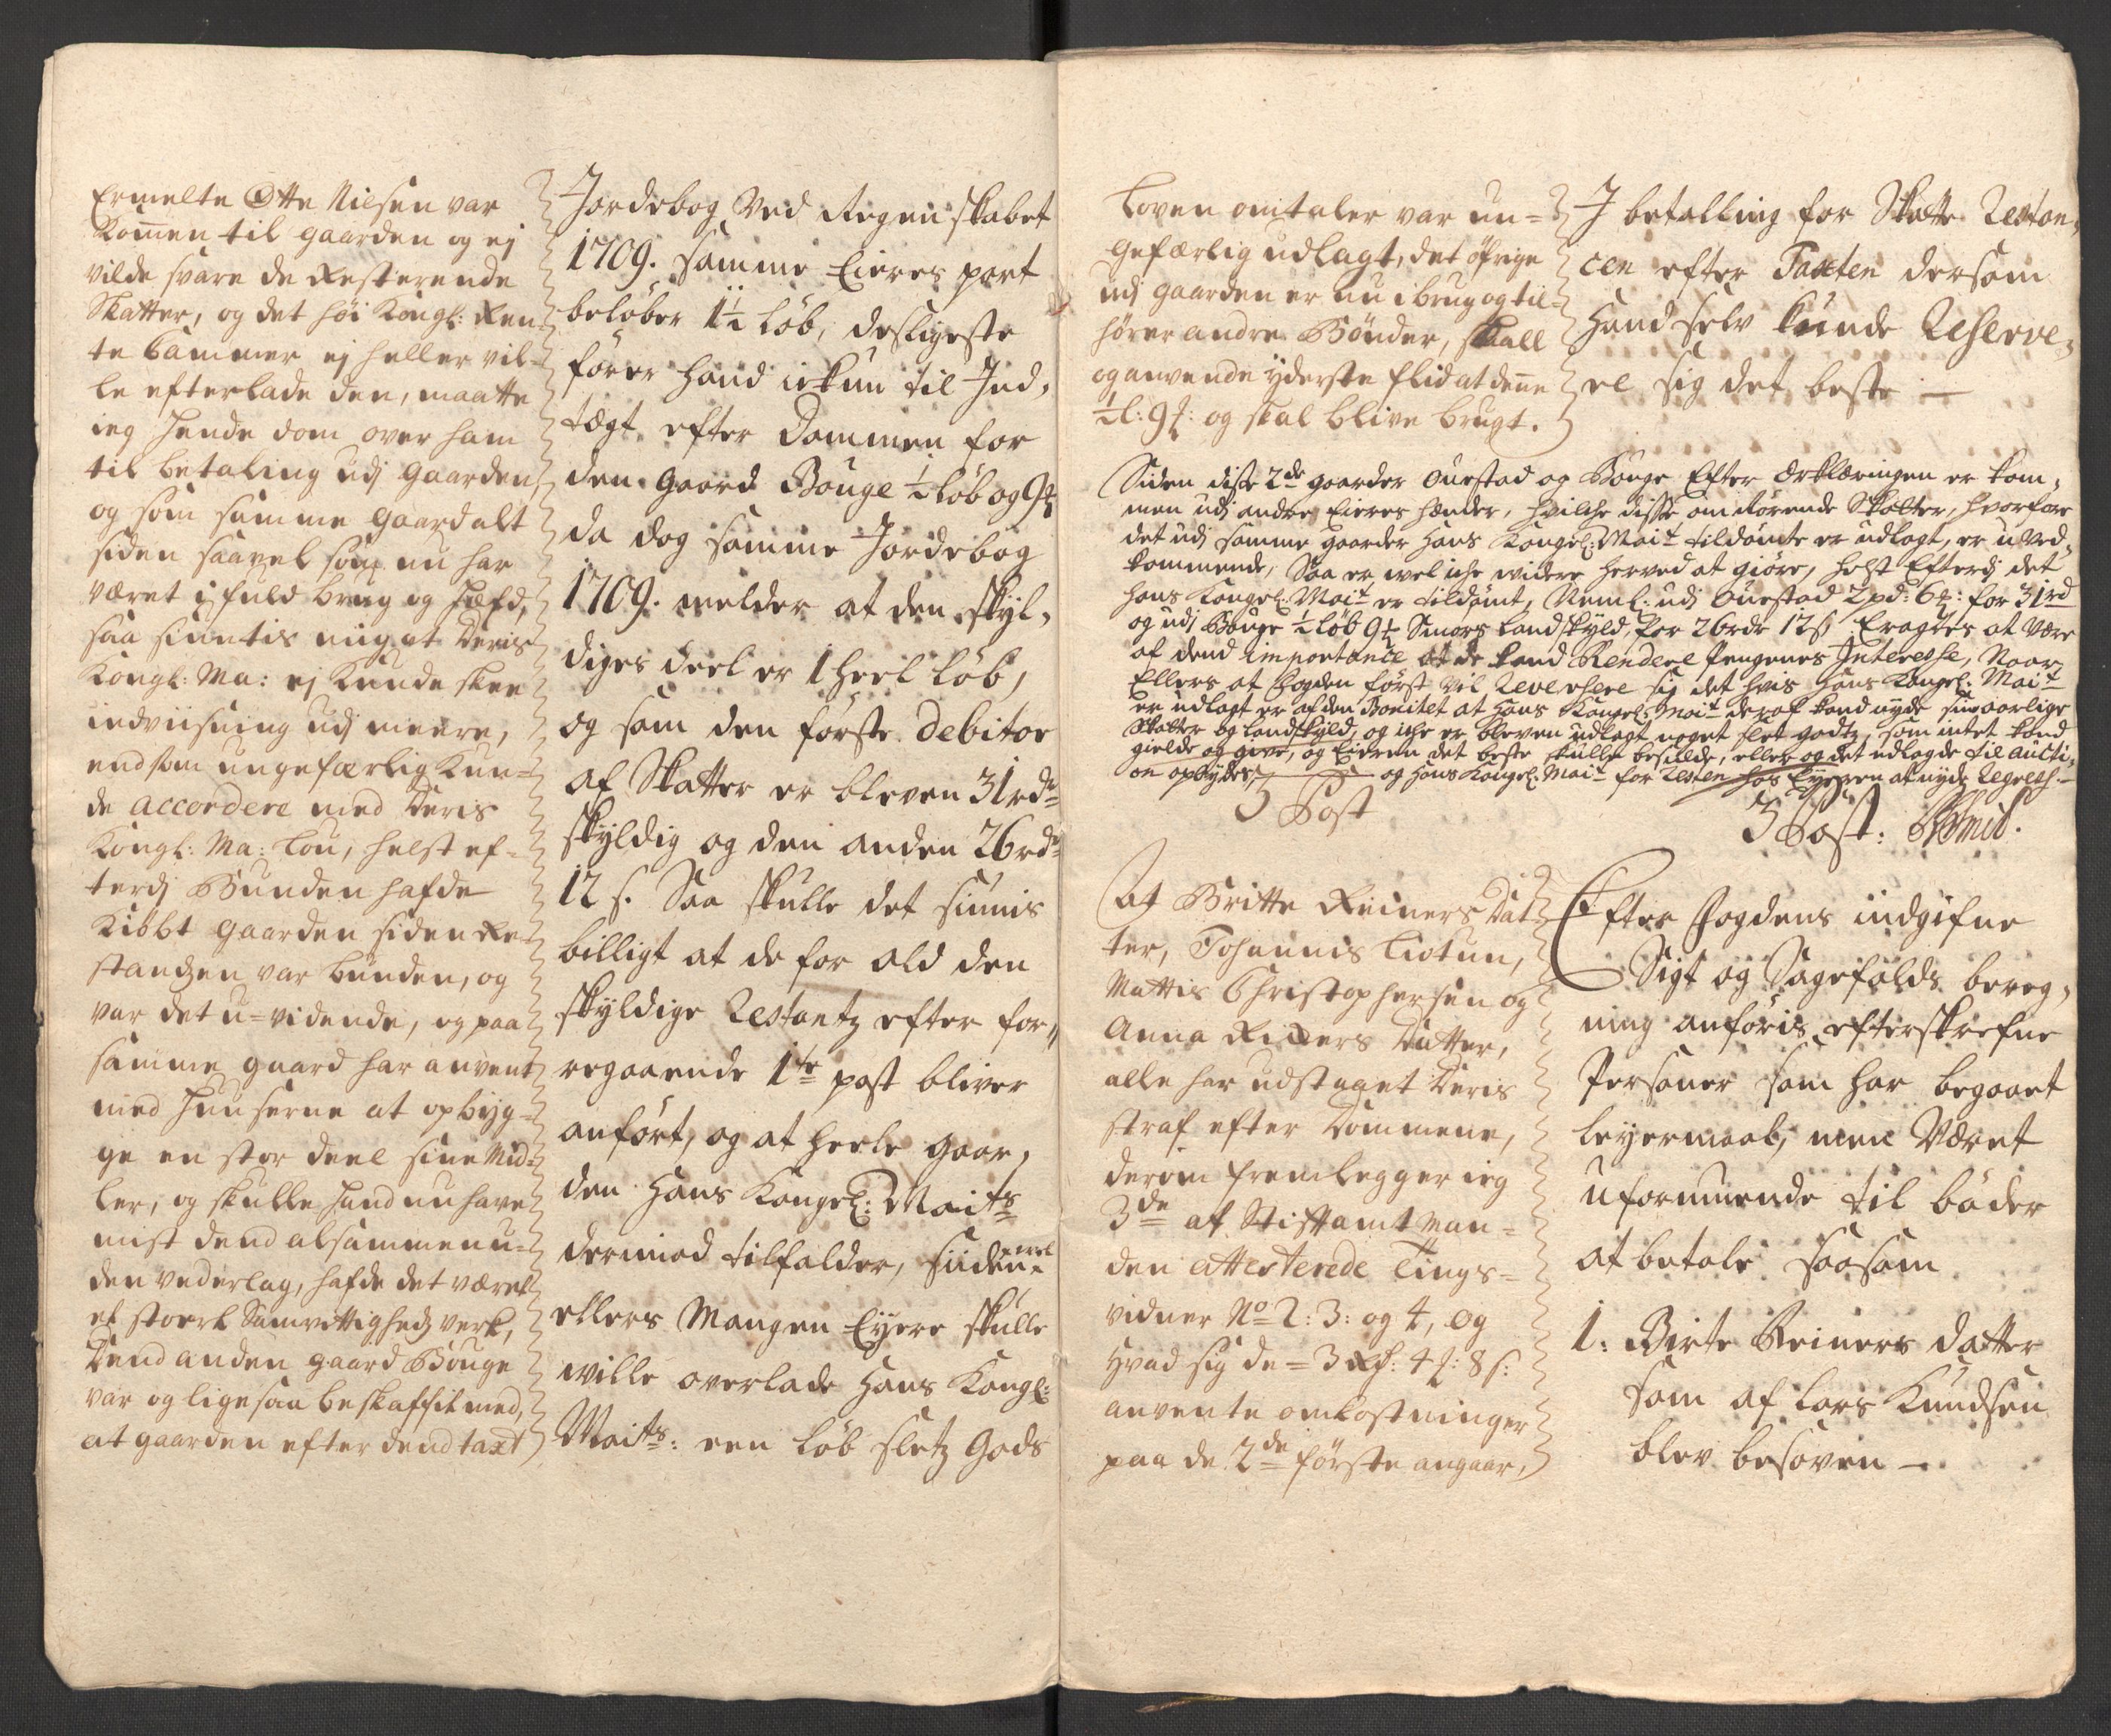 Ermelte Otte Nilsen var
kommen til gaarden og ej
vilde svare de Resterende
Skatter, og det höi Kongl: Ren-
te Cammer ej heller vil-
le efterlade den, maatte
ieg hende dom over ham
til betaling udj gaarden,
og som samme gaard alt
siden saavel som nu har
været i fuld brug og hæfd,
saa siuntis mig at Deris
Kongl: Ma: ej kunde skee
indviisning udj meere,
end som ungefærlig kun-
de accordere med Deris
Kongl: Ma: Lou, helst ef-
terdj Bunden hafde
Kiöbt gaarden siden Re-
standzen var bunden, og
var det u-vidende, og paa
samme gaard har anvent
med huuserne at opbyg-
ge en stor deel sine Mid-
ler, og skulle hand nu have
mist dend alsammen u-
den vederlag, hafde det været
et stoert Samvittighedz verk,
Dend anden gaard Bouge
var og ligesaa beskaffet med,
at gaarden efter dend taxt
Jordebog ved Regenskabet
1709. samme Eieres part
beløber 1½ löb, desligeste
förer hand ickun til Ind-
tægt efter Dommen for
den gaard Bouge ½ löb og 9
da dog samme Jordebog
1709. melder at den skyl-
diges deel er 1 heel löb,
og som den förste debitor
af Skatter er bleven 31 rdr
skyldig og den anden 26 rdr
12 s. Saa skulle det siunis
billigt at de for ald den
skyldige Restantz efter for-
regaaende 1te post bliver
anfört, og at heele gaar-
den Hans Kongel: Maits
dermed tilfalder, siiden vel
ellers Mangen Eyere skulle
wille overlade Hans Kongl:
Maits: een löb sletz Gods
Loven omtaler var un-
gefærlig udlagt, det öfrige
udj gaarden er nu i brug og til-
hörer andre Bönder, skall
og anvende yderste flid at denne
½ l: 9: og skal blive brugt.
I betalling for Skatte Restan-
cen efter Taxten dersom
Hand selv kunde Reserve-
re sig det beste —
Siden disse 2de gaarder Ouestad og Bouge Efter Erklæringen er kom-
men udj andre Eieres hænder, hvilche disse omrörende Skatter, hvorfore
det udj samme gaarder Hans Kongel: Mait tildömte er udlagt, er uved-
kommende, Saa er wel iche widere herved at giöre, helst Efterdj det
Hans Kongel: Mait er tildömt, Neml: udj Ouestad 2 pd: 6: for 31 rd
og udj Bouge ½ löb 9 Smörs landskyld, for 26 rdr 12 s Eragtes at være
af dend importance at de kand Rendere pengenes Interesse, Naar
Ellers at fogden först vil Reversere sig det hvis Hans Kongel: Mait
er udlagt er af den Bonitet at Hans Kongel: Mait deraf kand nyde sine aarlige
Skatter og Landskyld, og iche er bleven udlagt noget slet godtz, som intet kand
gielde og give, og Eieren det beste skulle besidde, eller og det udlagde til Aucti-
on opbydes, og Hans Kongel: Mait for Resten hos Eyeren at nyde Regress.
3 Post
3 Post:
At Britte Reiners Dat-
ter, Johannis Liotun,
Mattis Christophersen og
Anna Reiners Datter,
alle har udstaaet Deris
straf efter Dommene,
derom fremlegger ieg
3de af Stiftamtman-
den attesterede Tings-
vidner No 2: 3: og 4, og
Hvad sig de = 3 Rd: 4: 8 s:
anvente omkostninger
paa de 2de förste angaar,
Efter fogdens indgifne
Sigt og Sagefalds bereg-
ning anföris efterskrefne
Personer som har begaaet
leyermaal, men Været
uformuende til böder
at betale saasom
1: Birte Reiners datter
som af Lars Knudsen
blev besoven —